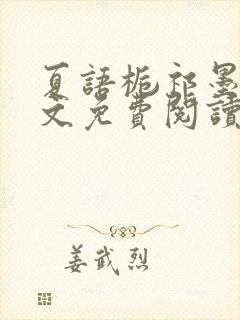 夏語梔祁墨
文免費閱讀
姜武烈